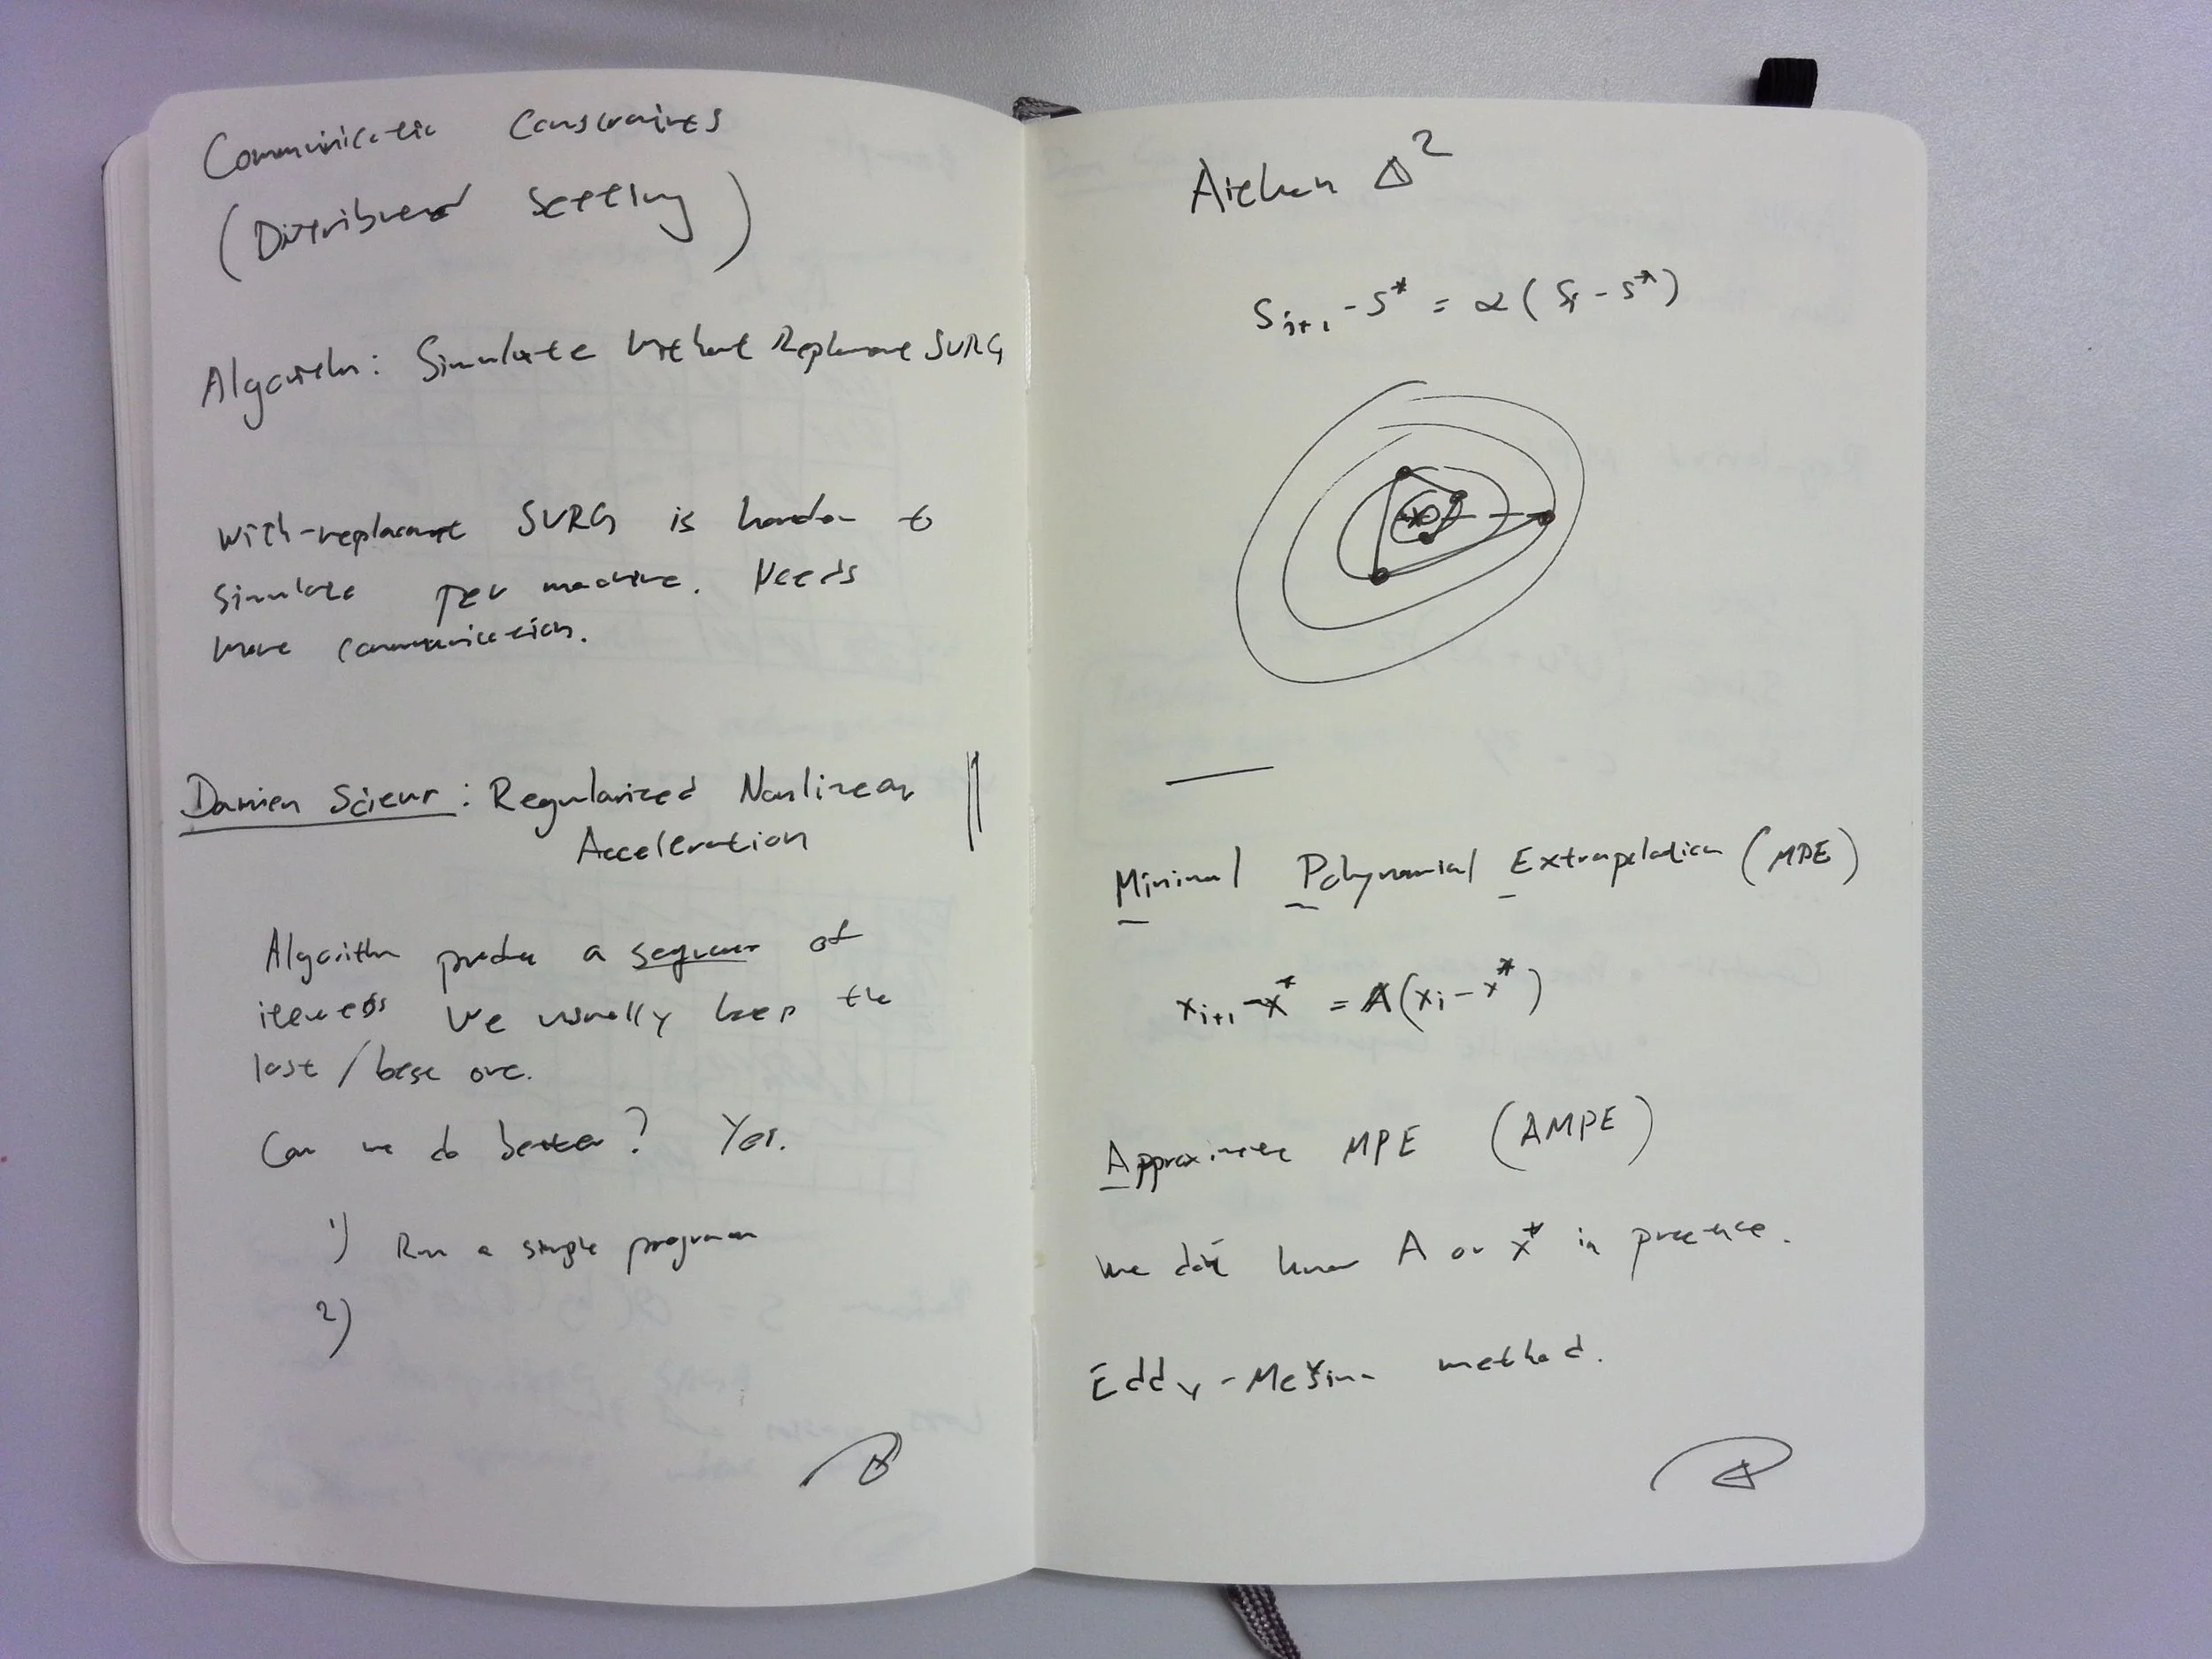 Communication Constraints
(Distributed Setting)
Algorithm: Simulate Without Replacement SVRG
With-replacement SVRG is harder to
simulate per machine. Needs
more communication.
Damien Scieur: Regularized Nonlinear
Acceleration
Algorithm produce a sequence of
iterates We usually keep the
last / best one.
Can we do better? Yes.
1) Run a single program
2)
Aitken Δ²
Sᵢ₊₁ - S* = α(Sᵢ - S*)
Minimal Polynomial Extrapolation (MPE)
xᵢ₊₁ - x* = A(xᵢ - x*)
Approximate MPE (AMPE)
We don't know A or x* in practice.
Eddy - Mešina method.